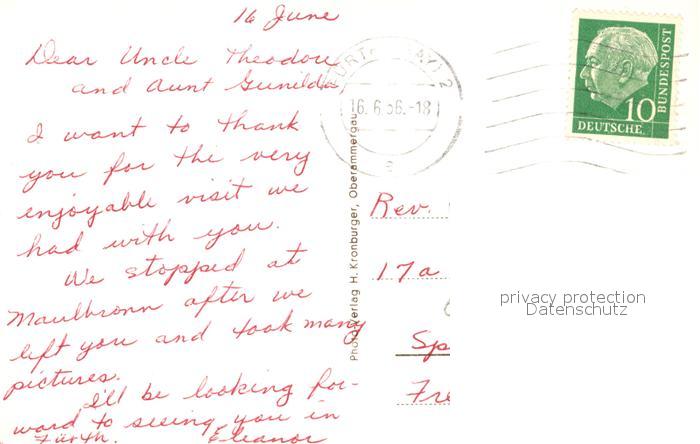 16 June
Dear Uncle Theodore
and Aunt Gunilda,
I want to thank
you for the very
enjoyable visit we
had with you.
We stopped at
Maulbronn after we
left you and took many
pictures.
I'll be looking for-
ward to seeing you in
Fürth. Eleanor
16.6.56.-18
Photo-Verlag H. Kronburger, Oberammergau
10
DEUTSCHE
BUNDESPOST
Rev.
17a
Sp
Fre
privacy protection
Datenschutz